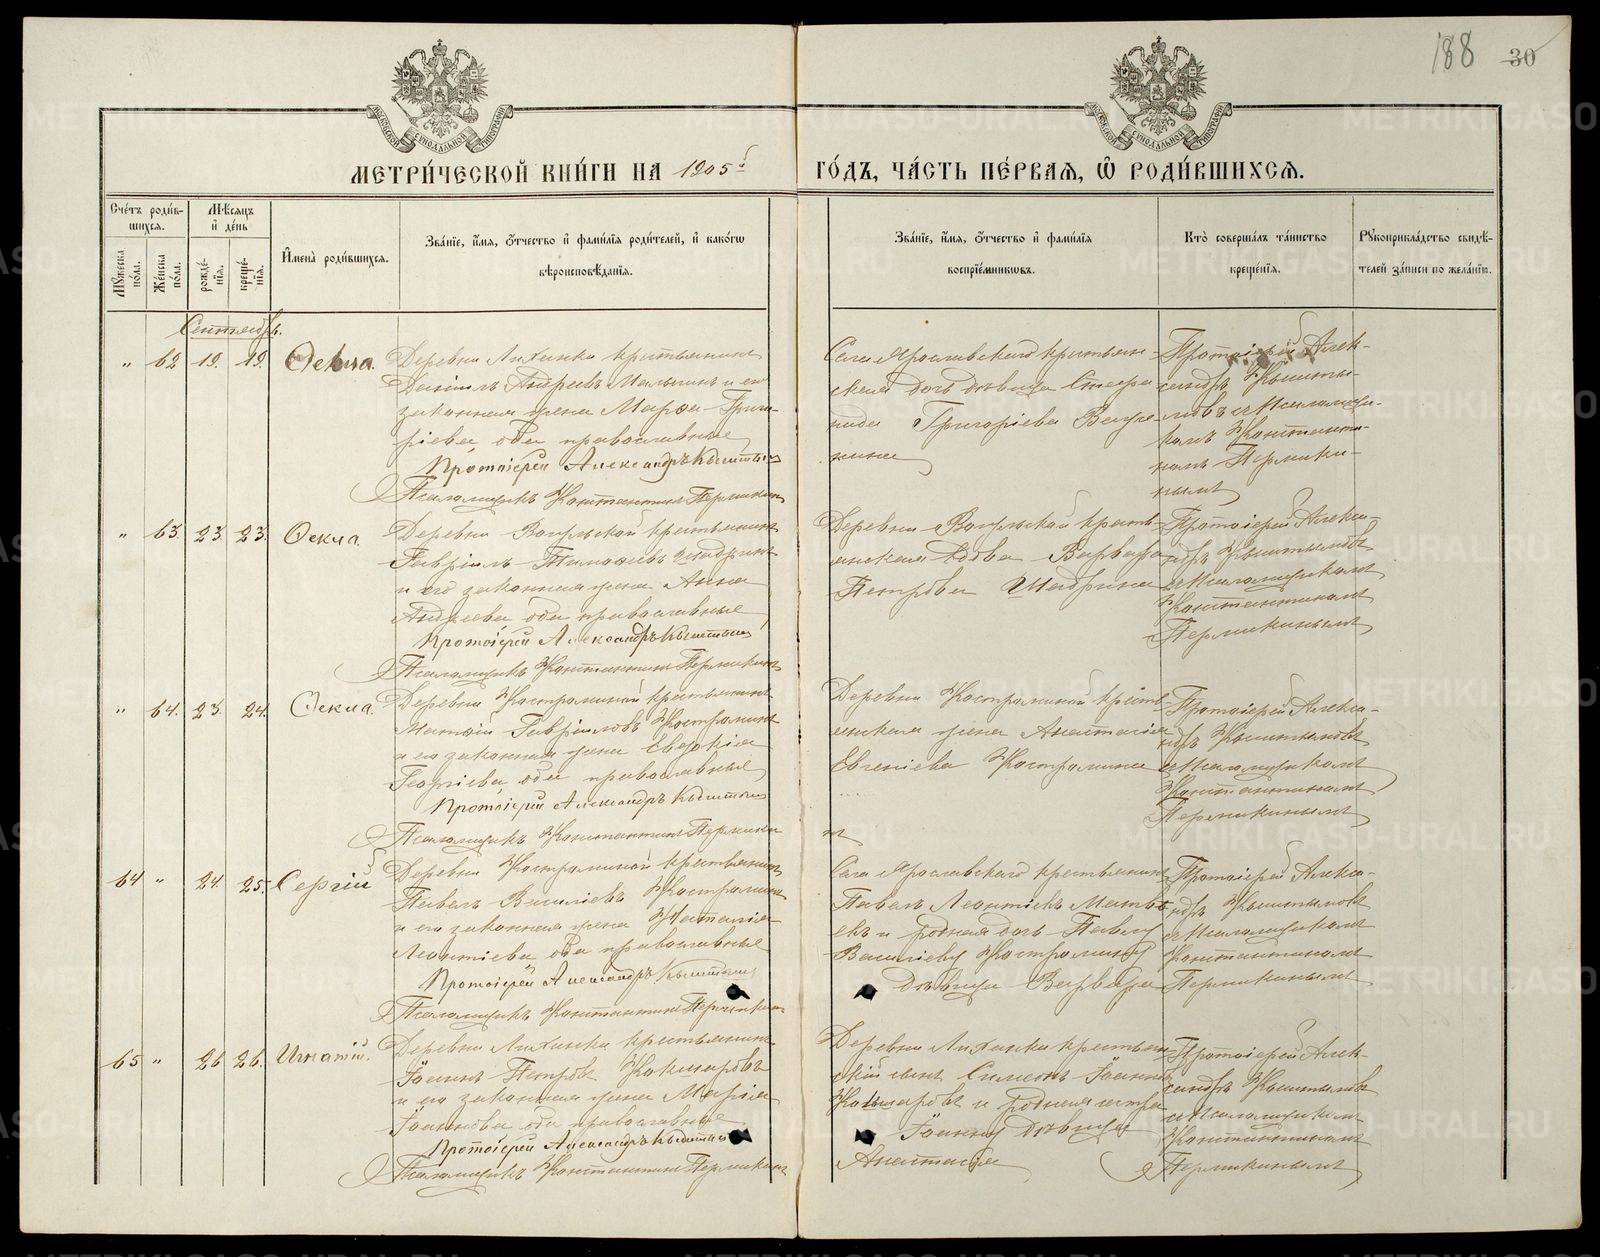 188 30
МЕТРИ́ЧЕСКОЙ КНИ́ГИ НА 1905 й ГО́ДЪ, ЧА́СТЬ ПЕ́РВАЯ, Ѡ РОДИ́ВШИХСЯ.
Сче́тъ роди́в-
шихся.
Мꙋ́жеска по́ла.
Же́нска по́ла.
Мѣ́сяцъ и де́нь
рожде́нїя.
креще́нїя.
И҆мена̀ роди́вшихся.
Зва́нїе, и҆́мя, ѻ҆́тчество и҆ фами́лїя роди́телей, и҆ како́гѡ
вѣроисповѣ́данїя.
Зва́нїе, и҆́мя, ѻ҆́тчество и҆ фами́лїя
воспрїе́мникѡвъ.
Кто̀ соверша́лъ та́инство
креще́нїя.
Рꙋкоприкла́дство свидѣ́-
телей за́писи по жела́нїю.
Сентябрь.
" 62 19. 19. Ѳекла.
Деревни Ляхинки крестьянинъ
Данiилъ Андреевъ Малыгинъ и его
законная жена Марѳа Григо-
рiева оба православные
Протоiерей Александръ Кыштымовъ
Псаломщикъ Константинъ Пермикинъ
Села Ярославскаго крестьян-
ская дочь дѣвица
Григорiева
Протоiерей Алек-
сандръ Кыштымовъ
съ псаломщикомъ Константиномъ
Пермикинымъ
" 63. 23. 23. Ѳекла.
Деревни Вагульской крестьянинъ
Гаврiилъ Тимоѳеевъ Шадринъ
и его законная жена Анна
Андреева оба православные
Протоiерей Александръ Кыштымовъ
Псаломщикъ Константинъ Пермикинъ
Деревни Вагульской кресть-
янская вдова Варвара
Петрова Шадрина
Протоiерей Алекса-
ндръ Кыштымовъ
съ псаломщикомъ
Константиномъ
Пермикинымъ
" 64. 23. 24. Ѳекла.
Деревни Костроминой крестьянинъ
Матѳiй Гаврiиловъ Костроминъ
и его законная жена Евдокiя
Георгiева оба православные
Протоiерей Александръ Кыштымовъ
Псаломщикъ Константинъ Пермикинъ
Деревни Костроминой кресть-
янская жена Анастасiя
Евгенiева Костромина
Протоiерей Алекса-
ндръ Кыштымовъ
съ псаломщикомъ
Константиномъ
Пермикинымъ
64 " 24. 25. Сергiй
Деревни Костроминой крестьянинъ
Павелъ Василiевъ Костроминъ
и его законная жена Наталiя
Леонтiева оба православные
Протоiерей Александръ Кыштымовъ
Псаломщикъ Константинъ Пермикинъ
Села Ярославскаго крестьянинъ
Павелъ Леонтiевъ Матвѣ-
евъ и родная дочь Павлу
Василiеву Костромину
дѣвица Варвара
Протоiерей Алекса-
ндръ Кыштымовъ
съ псаломщикомъ
Константиномъ
Пермикинымъ
65 " 26 26. Игнатiй.
Деревни Ляхинки крестьянинъ
Iоаннъ Петровъ Кокшаровъ
и его законная жена Марiя
Iоаннова оба православные
Протоiерей Александръ Кыштымовъ
Псаломщикъ Константинъ Пермикинъ
Деревни Ляхинки крестьян-
скiй сынъ Симеонъ Iоанновъ
Кокшаровъ и родная сестра
Iоанну дѣвица
Анастасiя
Протоiерей Алек-
сандръ Кыштымовъ
съ псаломщикомъ
Константиномъ
Пермикинымъ
METRIKI.GASO-URAL.RU